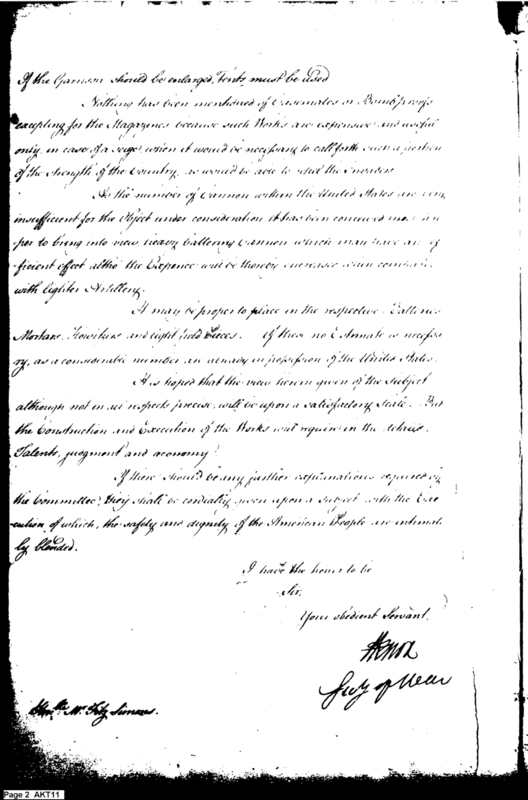 If the Garrison should be enlarged, Tents must be used
Nothing has been mentioned of Casemates or Bombproofs
excepting for the Magazines because such Works are expensive and useful
only in case of a seige when it would be necessary to call forth such a portion
of the strength of the Country, as would be able to repel the Invaders
As the number of Cannon within the United States are very
insufficient for the Object under consideration it has been conceived
per to bring into view heavy battering Cannon which may have an ef
ficient effect altho' the Expence will be thereby increased when compared
with lighter Artillery.
It may be proper to place in the respective Batteries
Mortars, Howitzers and light field Pieces. Of these no Estimate is necessa
ry, as a considerable number are already in possession of the United States.
It is hoped that the view herein given of the subject
although not in all respects precise, will be upon a satisfactory scale. But
the Construction and Execution of the Works will require in the details
Talents, judgment and œconomy.
If there should be any further explanations required by
the Committee, they shall be cordially given upon a subject with the Exe
cution of which, the safety and dignity of the American People are intimate
ly blended.
I have the honor to be
Sir,
Your obedient Servant,
HKnox
Secy of War
Honble. Mr. Fitz Simons.
Page 2 AKT11